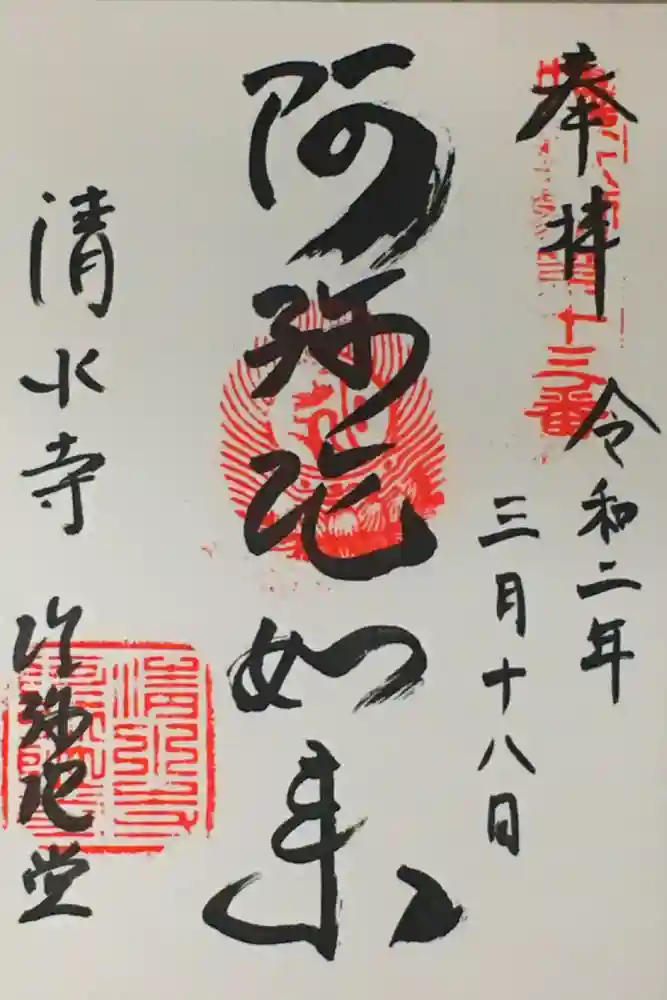 奉拝
令和二年
三月十八日
阿弥陀如来
清水寺
阿弥陀堂
十三番